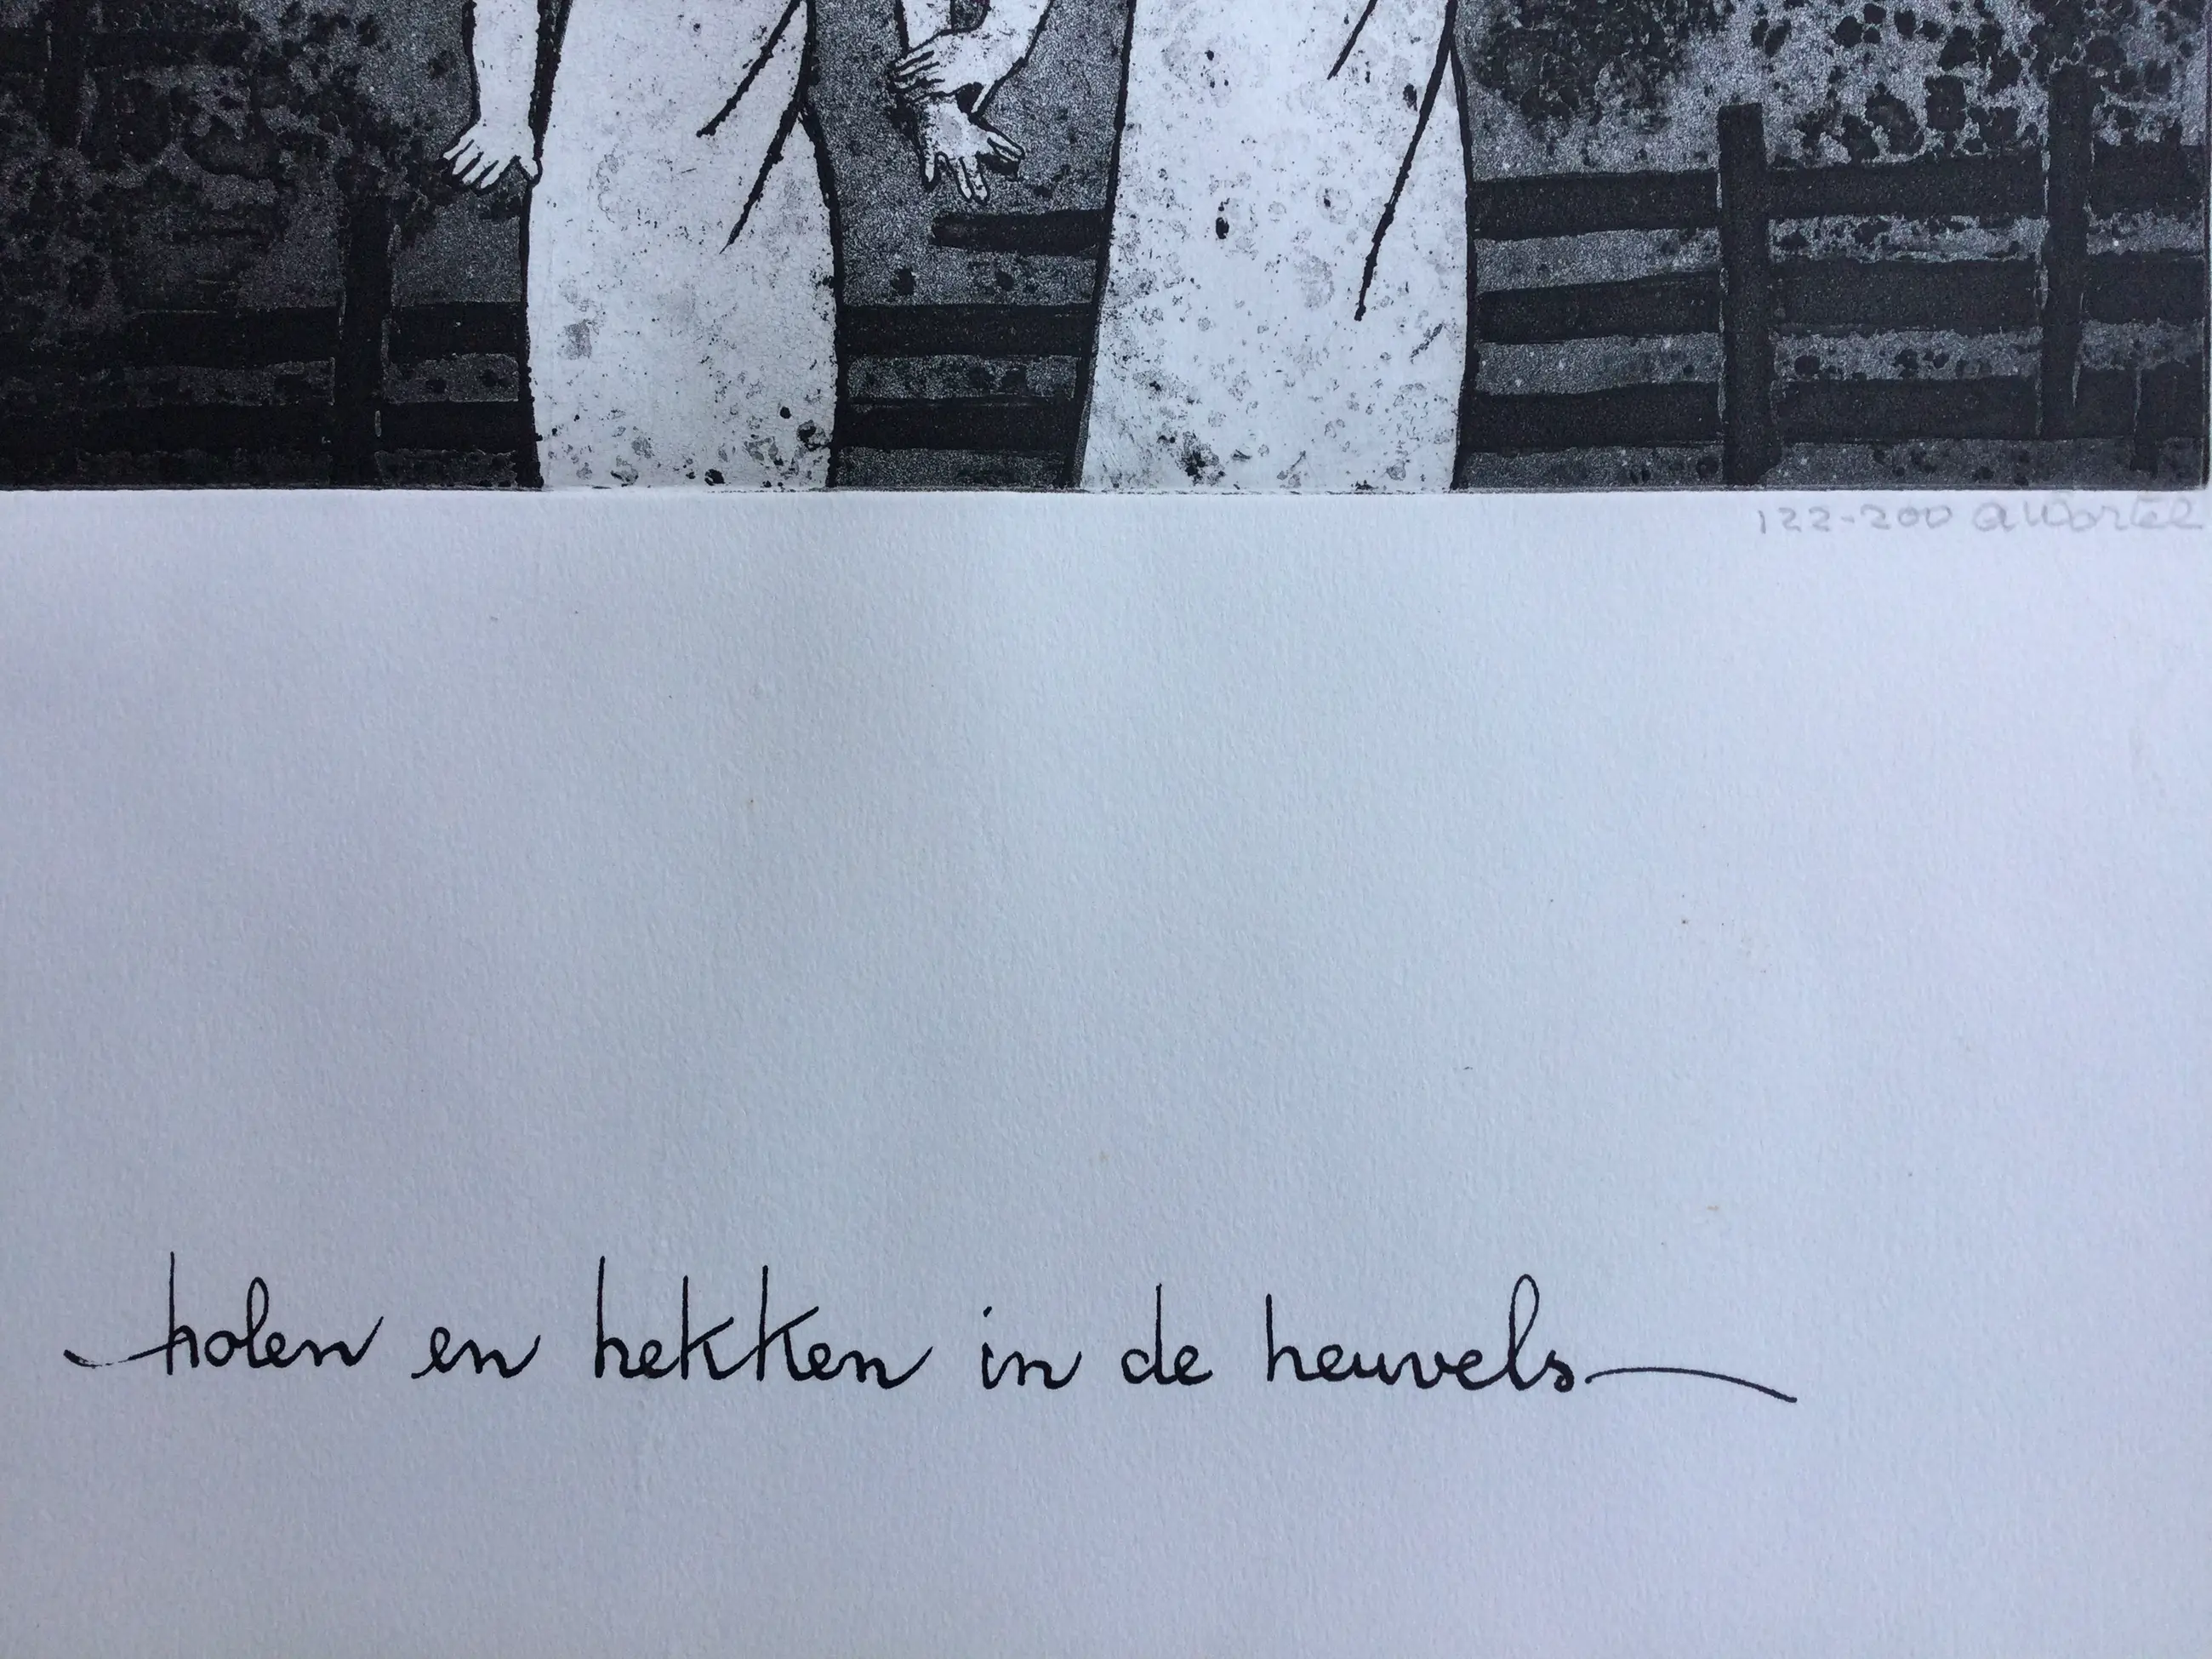 122-200 AWortel
holen en hekken in de heuvels